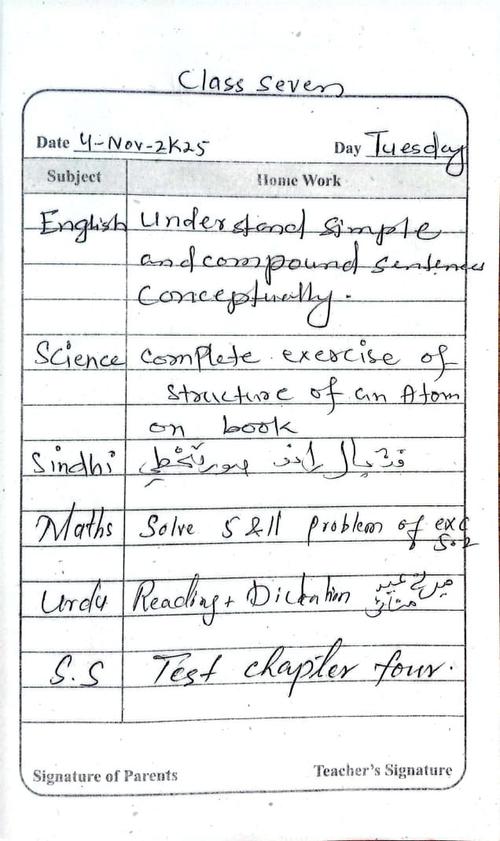 Class Seven
Date 4-Nov-2K25 Day Tuesday
Subject Home Work
English Understand simple
and compound sentences
Conceptually.
Science complete exercise of
structure of an Atom
on book
Sindhi
Maths Solve 5 & 11 problem of exc
5.2
Urdu Reading + Dictation میں نے عید
منائی
S.S Test chapter four.
Signature of Parents Teacher's Signature